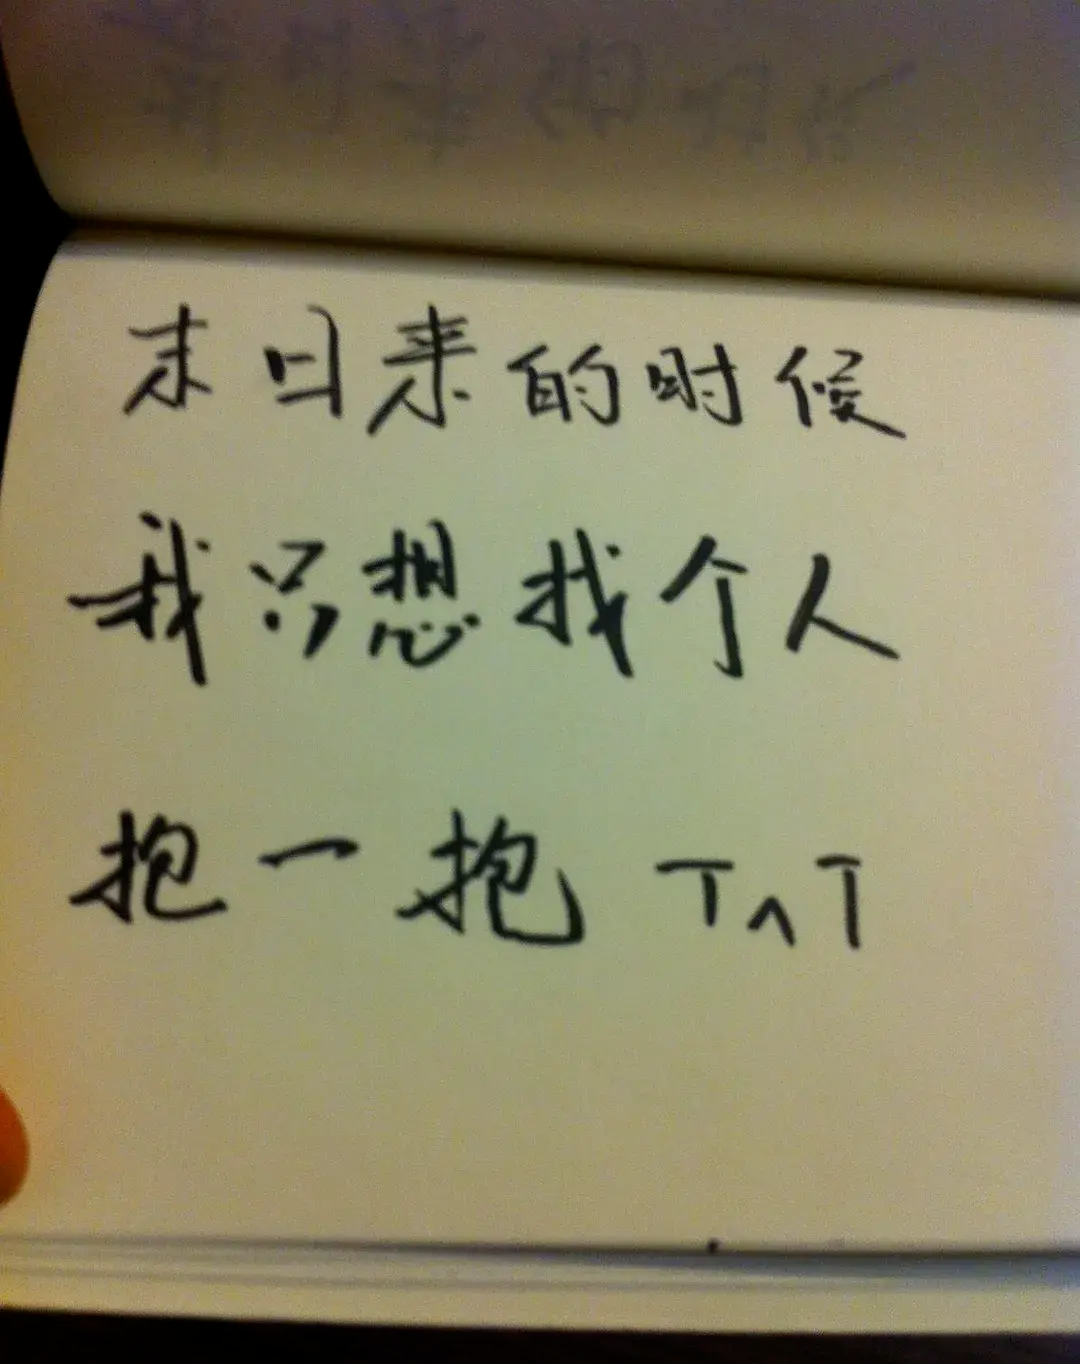 末日来的时候
我只想找个人
抱一抱 T^T